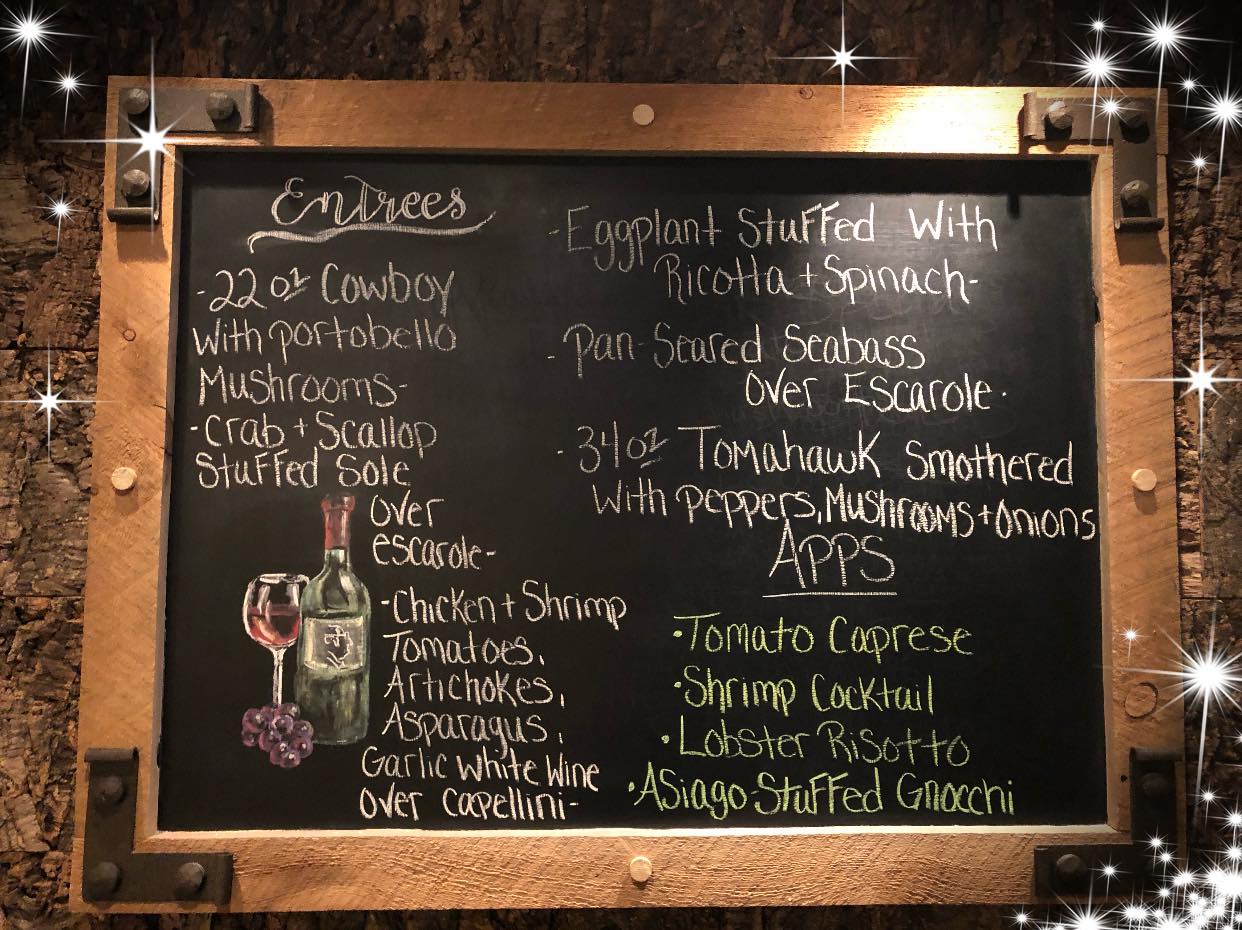 Entrees
-22oz Cowboy
With portobello
Mushrooms-
-Crab + Scallop
Stuffed Sole
Over
escarole-
-Chicken + Shrimp
Tomatoes,
Artichokes,
Asparagus,
Garlic White Wine
Over Capellini-
-Eggplant Stuffed With
Ricotta + Spinach-
-Pan Seared Seabass
Over Escarole-
-34oz Tomahawk Smothered
With peppers, Mushrooms + Onions
APPS
•Tomato Caprese
•Shrimp Cocktail
•Lobster Risotto
•Asiago-Stuffed Gnocchi